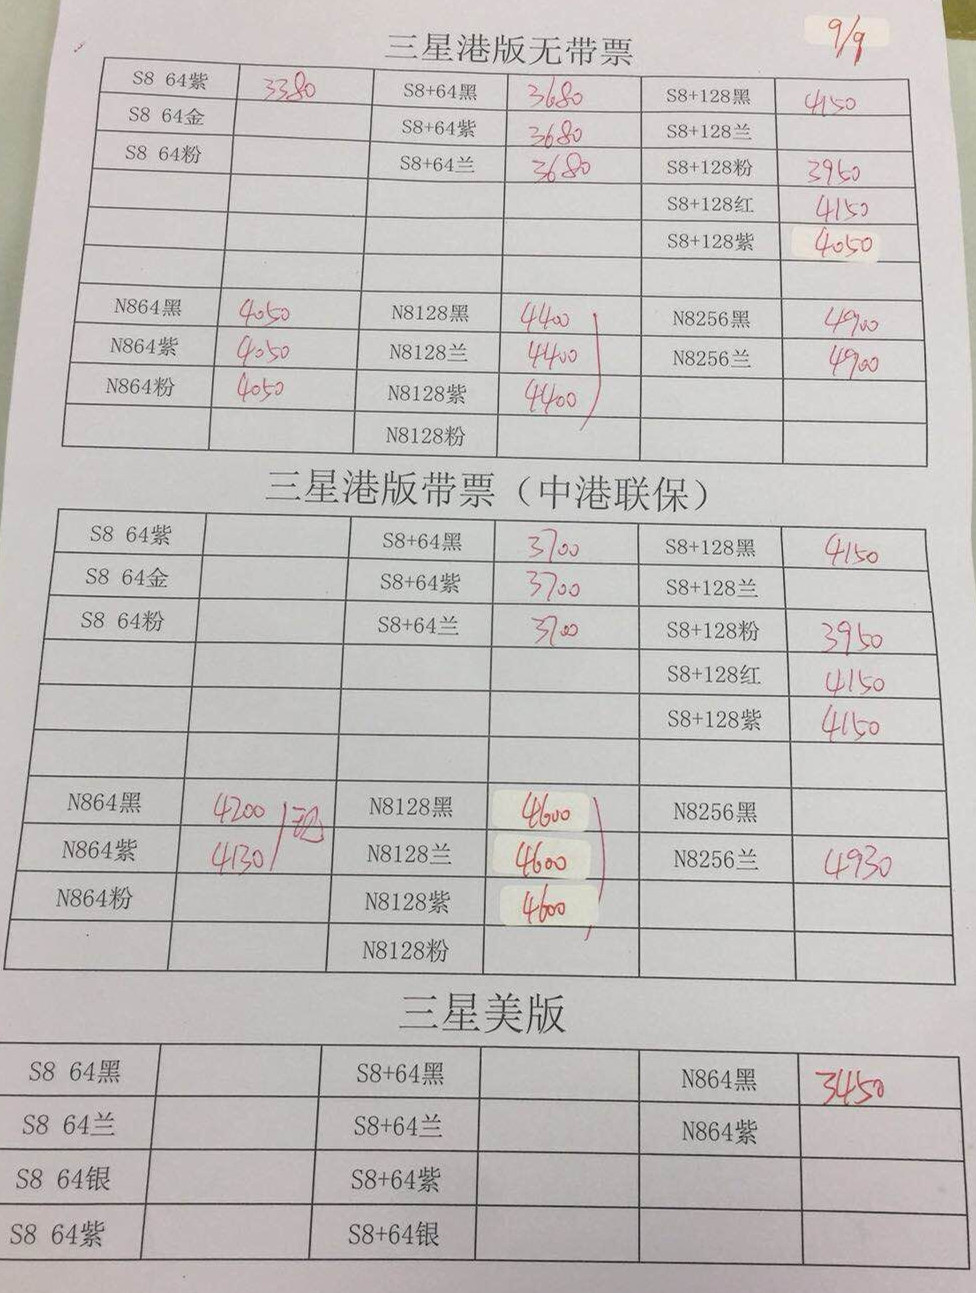 9/9
三星港版无带票
S8 64紫 3380 S8+64黑 3680 S8+128黑 4150
S8 64金 S8+64紫 3680 S8+128兰
S8 64粉 S8+64兰 3680 S8+128粉 3950
S8+128红 4150
S8+128紫 4050
N864黑 4050 N8128黑 4400 N8256黑 4900
N864紫 4050 N8128兰 4400 N8256兰 4900
N864粉 4050 N8128紫 4400
N8128粉
三星港版带票（中港联保）
S8 64紫 S8+64黑 3700 S8+128黑 4150
S8 64金 S8+64紫 3700 S8+128兰
S8 64粉 S8+64兰 3700 S8+128粉 3950
S8+128红 4150
S8+128紫 4150
N864黑 4200 N8128黑 4600 N8256黑
N864紫 4130 N8128兰 4600 N8256兰 4930
N864粉 N8128紫 4600
N8128粉
三星美版
S8 64黑 S8+64黑 N864黑 3450
S8 64兰 S8+64兰 N864紫
S8 64银 S8+64紫
S8 64紫 S8+64银